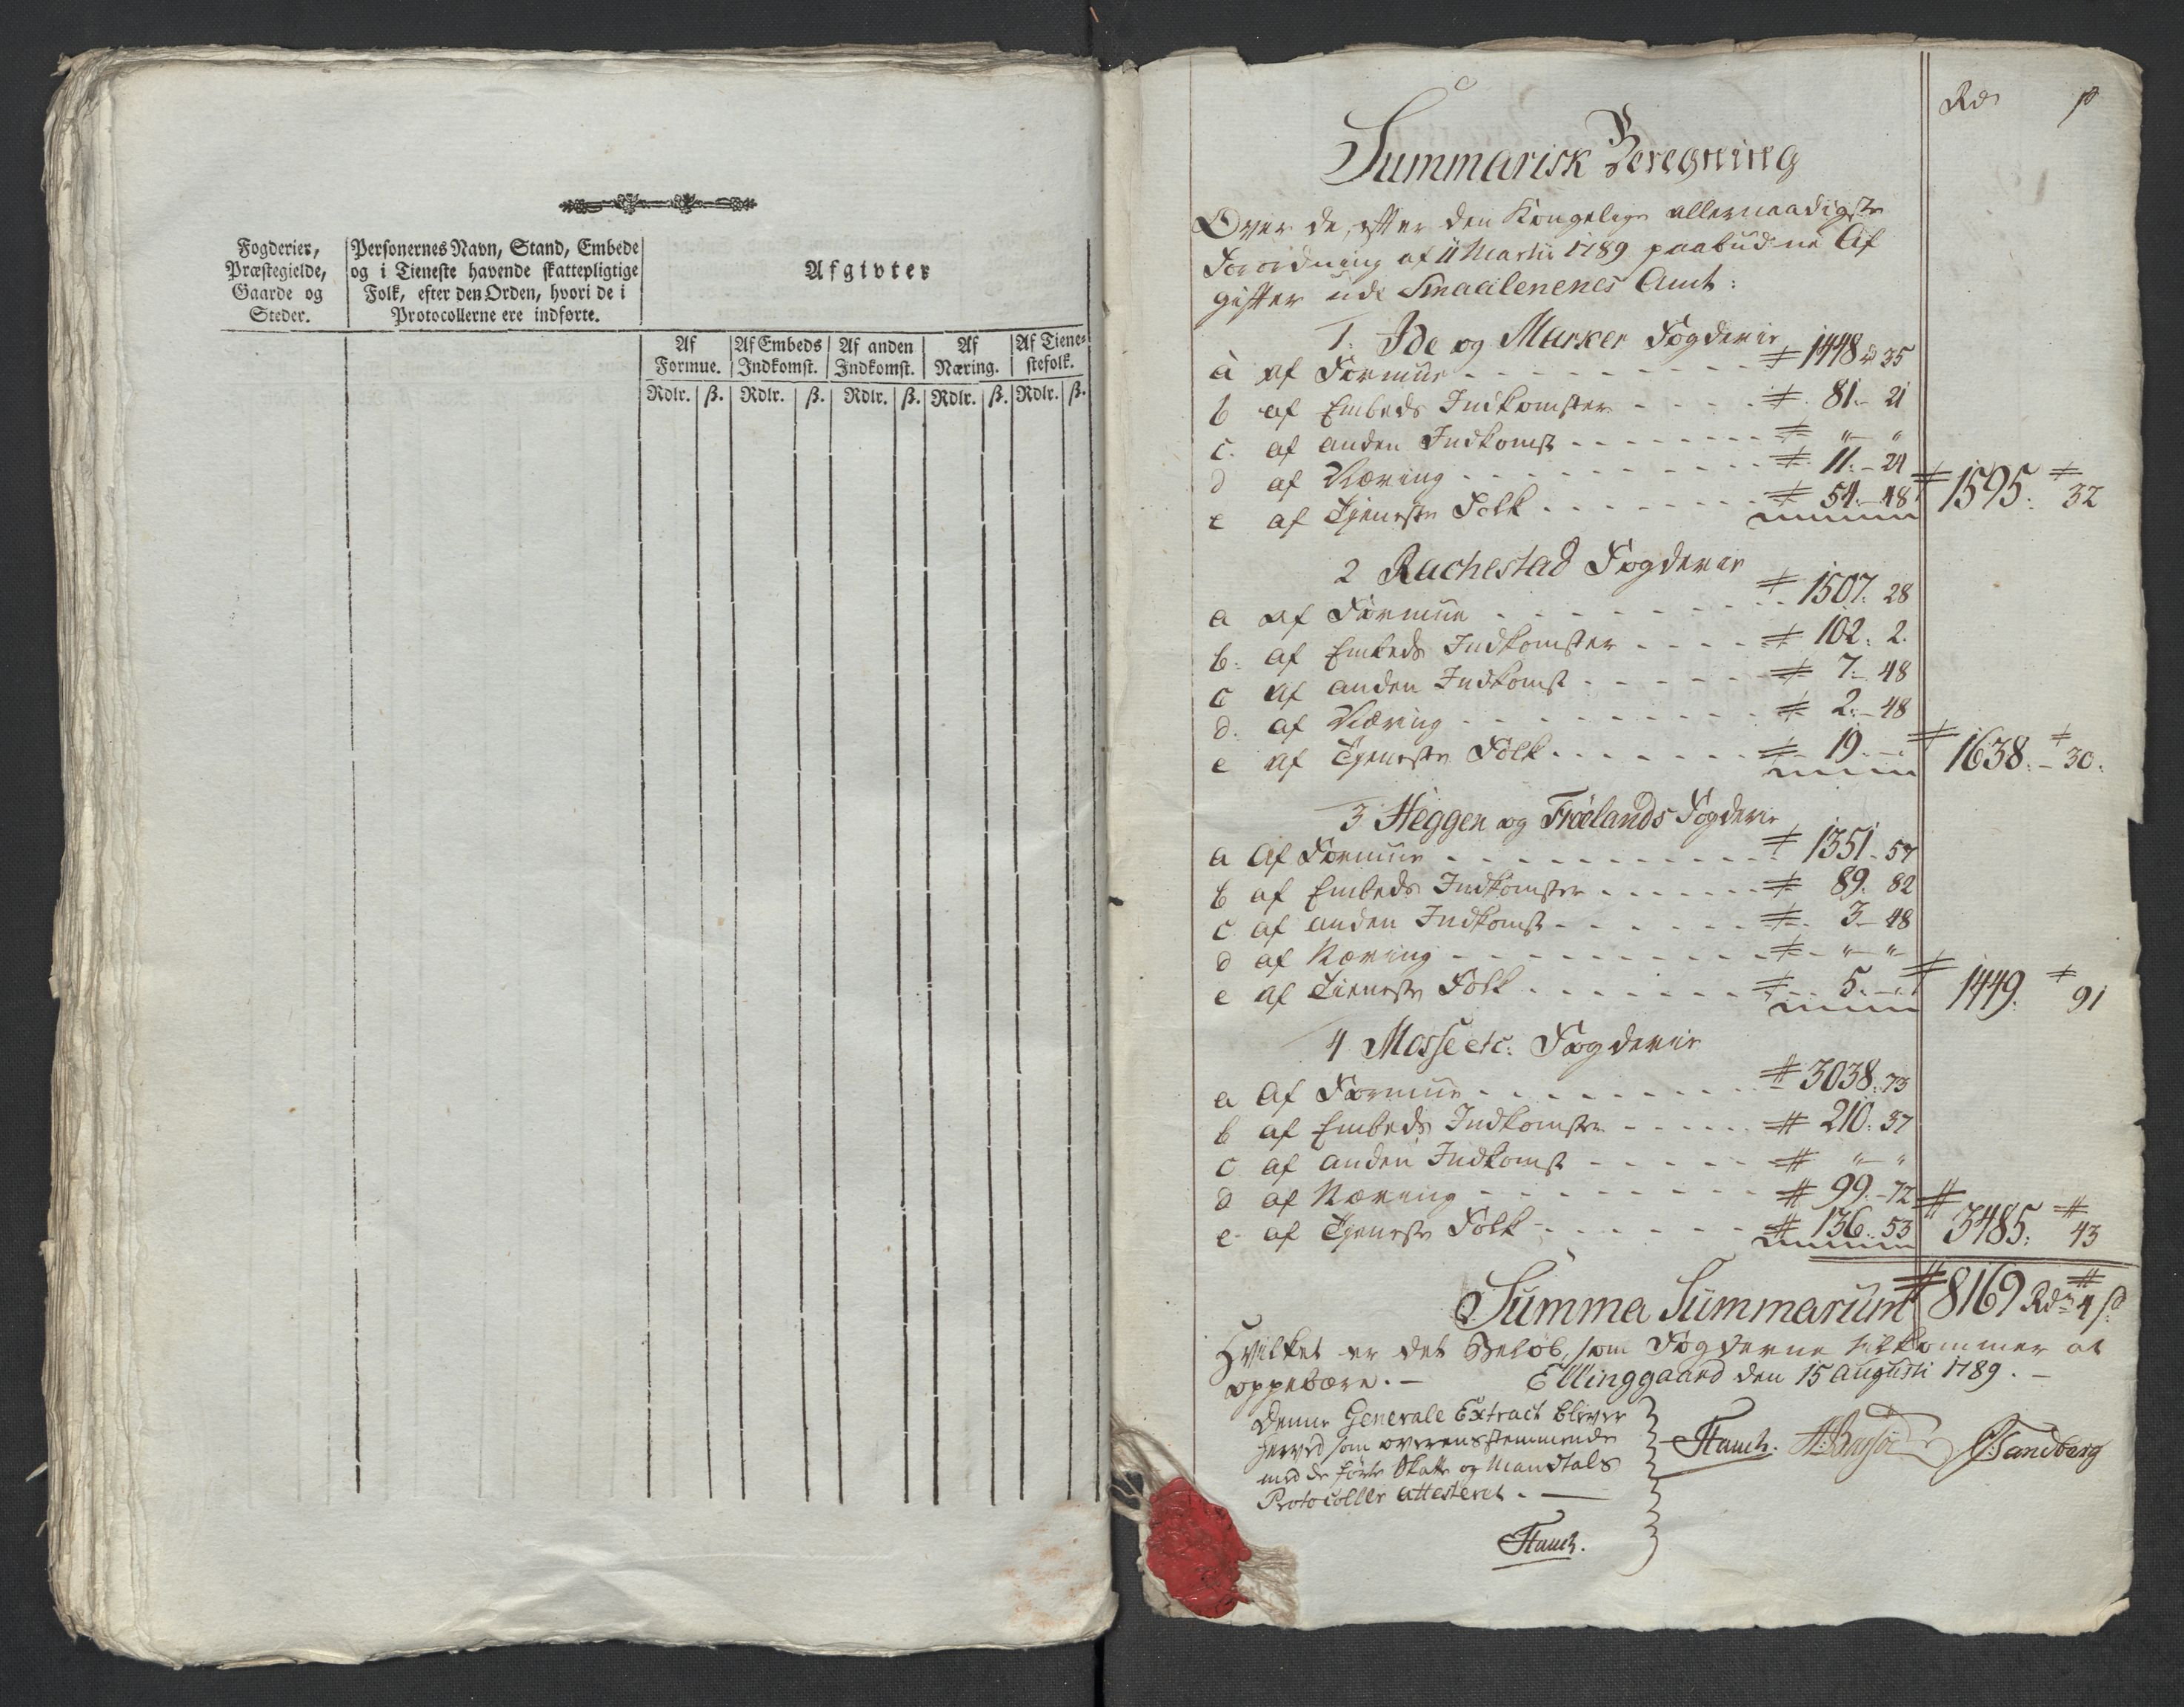 Fogderier,
Præstegielde,
Gaarde og
Steder.
Personernes Navn, Stand, Embede
og i Tieneste havende skattepligtige
Folk, efter den Orden, hvori de i
Protocollerne ere indførte.
Afgivter
Af
Formue.
Af Embeds
Indkomst.
Af anden
Indkomst.
Af
Næring.
Af Tiene-
stefolk.
Rdlr. ß. Rdlr. ß. Rdlr. ß. Rdlr. ß. Rdlr. ß.
Rdr ß
Summarisk Beregning
Over de, efter den Kongelige allernaadigste
Forordning af 11 Martii 1789 paabudne Af
gifter udi Smaalenenes Amt:
1. Ide og Marker Fogderie
a af Formue - - - # 1448 - 35
b af Embeds Indkomster - - - # 81 - 21
c. af anden Indkomst - - - # " "
d af Næring - - - # 11. - 24
e af Tjeneste Folk - - - # 54. - 48 # 1595. # 32
2 Rachestad Fogderie
a af Formue - - - # 1507. 28
b. af Embeds Indkomster - - - # 102. 2.
c af anden Indkomst - - - # 7. - 48
d. af Næring - - - # 2. - 48
e af Tjeneste Folk - - - # 19. - . # 1638. - # 30.
3 Heggen og Frølands Fogderie
a Af Formue - - - # 1351 - 57
b af Embeds Indkomster - - - # 89. 82
c af anden Indkomst - - - # 3 - 48
d af Næring - - - # " - "
e af Tieneste Folk - - - # 5. - . # 1449. # 91
4 Mosse etc: Fogderie
a Af Formue - - - # 3038. 73
b af Embeds Indkomster - - - # 210. 37
c af anden Indkomst - - - # " - "
d af Næring - - - # 99. - 72
e. af Tjeneste Folk - - - # 136. 53 # 3485. # 43
Summa Summarum # 8169 Rdr # 4 ß
Hvilket er det Beløb, som Fogderne tilkommer at
oppebære. - Ellinggaard den 15 Augusti 1789. -
Denne Generale Extract bliver
herved som overensstemmende
med de førte Skatte og Mandtals
Protocoller attesteret. -
Stauch. Sandberg
Stauch.